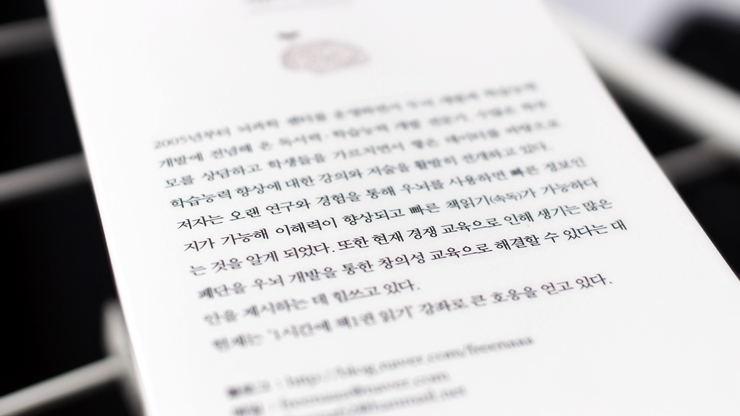 2005년부터 뇌과학 센터를 운영하면서 두뇌 개발과 학습능력
개발에 전념해 온 독서력·학습능력 개발 전문가. 수많은 학부
모를 상담하고 학생들을 가르치면서 쌓은 데이터를 바탕으로
학습능력 향상에 대한 강의와 저술을 활발히 전개하고 있다.
저자는 오랜 연구와 경험을 통해 우뇌를 사용하면 빠른 정보인
지가 가능해 이해력이 향상되고 빠른 책읽기(속독)가 가능하다
는 것을 알게 되었다. 또한 현재 경쟁 교육으로 인해 생기는 많은
폐단을 우뇌 개발을 통한 창의성 교육으로 해결할 수 있다는 대
안을 제시하는 데 힘쓰고 있다.
현재는 '1시간에 책1권 읽기' 강좌로 큰 호응을 얻고 있다.
블로그 : http://blog.naver.com/freenaaa